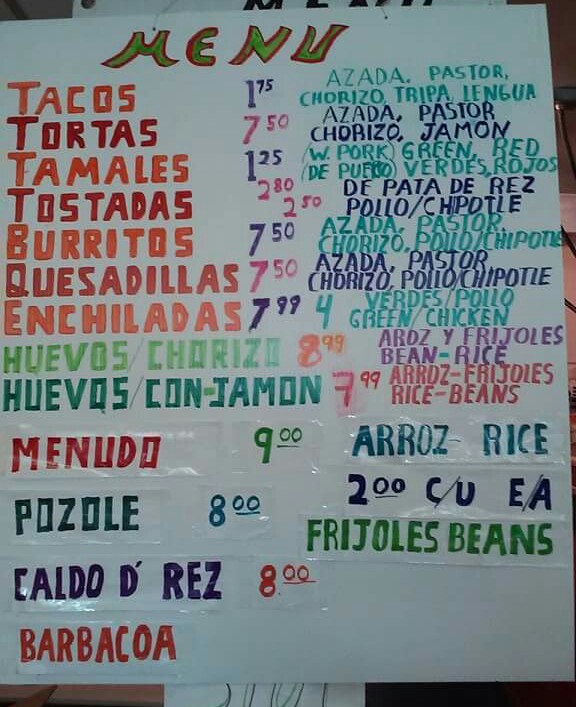 MENU
TACOS 1 75 AZADA. PASTOR,
CHORIZO, TRIPA, LENGUA
TORTAS 7 50 AZADA, PASTOR
CHORIZO, JAMON
TAMALES 1 25 (W. PORK) GREEN, RED
(DE PUERCO) VERDES, ROJOS
TOSTADAS 2 80 DE PATA DE REZ
2 50 POLLO/CHIPOTLE
BURRITOS 7 50 AZADA. PASTOR,
CHORIZO, POLLO/CHIPOTLE
QUESADILLAS 7 50 AZADA, PASTOR
CHORIZO, POLLO/CHIPOTLE
ENCHILADAS 7 99 4 VERDES/POLLO
GREEN/CHICKEN
HUEVOS/CHORIZO 8 99 AROZ Y FRIJOLES
BEAN-RICE
HUEVOS/CON-JAMON 7 99 ARROZ-FRIJOLES
RICE-BEANS
MENUDO 9 00 ARROZ- RICE
POZOLE 8 00 2 00 C/U E/A
FRIJOLES BEANS
CALDO D' REZ 8.00
BARBACOA